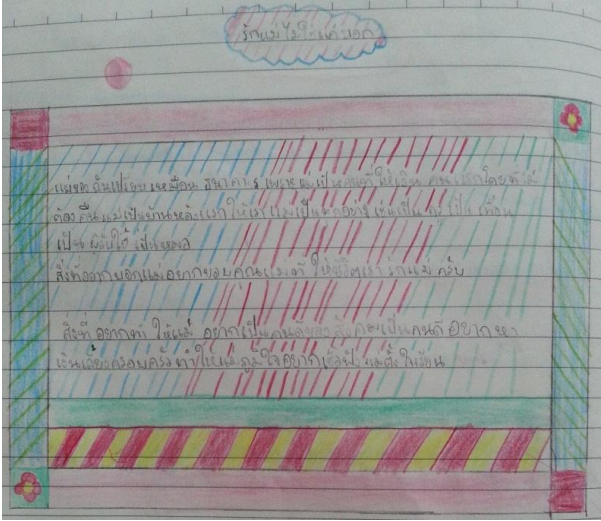 รักแม่ไม่ใช่แค่บอก
แม่ของฉันเปรียบเหมือน ธนาคาร เพราะแม่เป็นคนที่ให้เงิน คนแรกโดยที่ไม่
ต้องคืน แม่เป็นบ้านหลังแรกให้เรา แม่เป็นทุกอย่าง เช่นเป็น ครู เป็น เพื่อน
เป็น ผู้รับใช้ เป็นหมอ
สิ่งที่อยากบอกแม่อยากขอบคุณแม่ที่ ให้ชีวิตเรา รักแม่ ครับ
สิ่งที่ อยากทำ ให้แม่ อยากเป็นคนดีของ สังคมเป็นคนดี อยาก หา
เงินเลี้ยงครอบครัว ทำให้แม่ภูมิใจอยากเชื่อฟัง แม่ตั้ง ใจเรียน